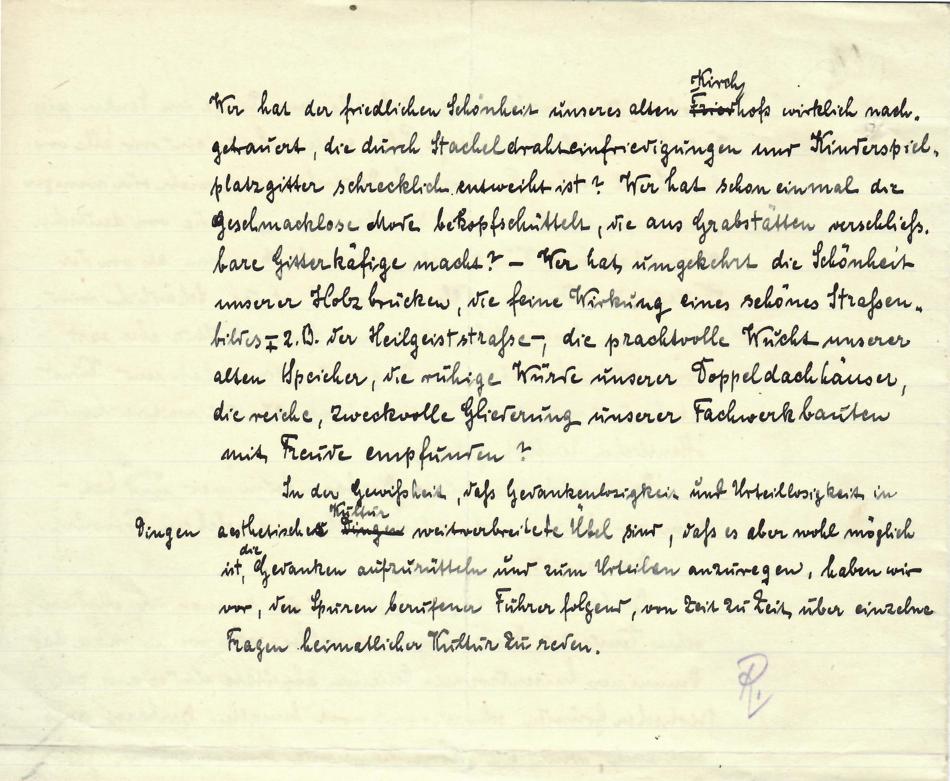 Kirch
Wer hat der friedlichen Schönheit unseres alten Friedhofs wirklich nach-
getrauert, die durch Stacheldrahteinfriedigungen und Kinderspiel-
platzgitter schrecklich entweiht ist? Wer hat schon einmal die
geschmacklose Mode bekopfschüttelt, die aus Grabstätten verschließ-
bare Gitterkäfige macht? – Wer hat umgekehrt die Schönheit
unserer Holzbrücken, die feine Wirkung eines schönes Strassen-
bildes – z.B. der Heilgeiststraße –, die prachtvolle Wucht unserer
alten Speicher, die ruhige Würde unserer Doppeldachhäuser,
die reiche, zweckvolle Gliederung unserer Fachwerkbauten
mit Freude empfunden?
In der Gewißheit, daß Gedankenlosigkeit und Urteillosigkeit in
Kultur
Dingen aesthetischer Dingen weitverbreitete Übel sind, daß es aber wohl möglich
die
ist, Gedanken aufzurütteln und zum Urteilen anzuregen, haben wir
vor, den Spuren berufener Führer folgend, von Zeit zu Zeit über einzelne
Fragen heimatlicher Kultur zu reden.